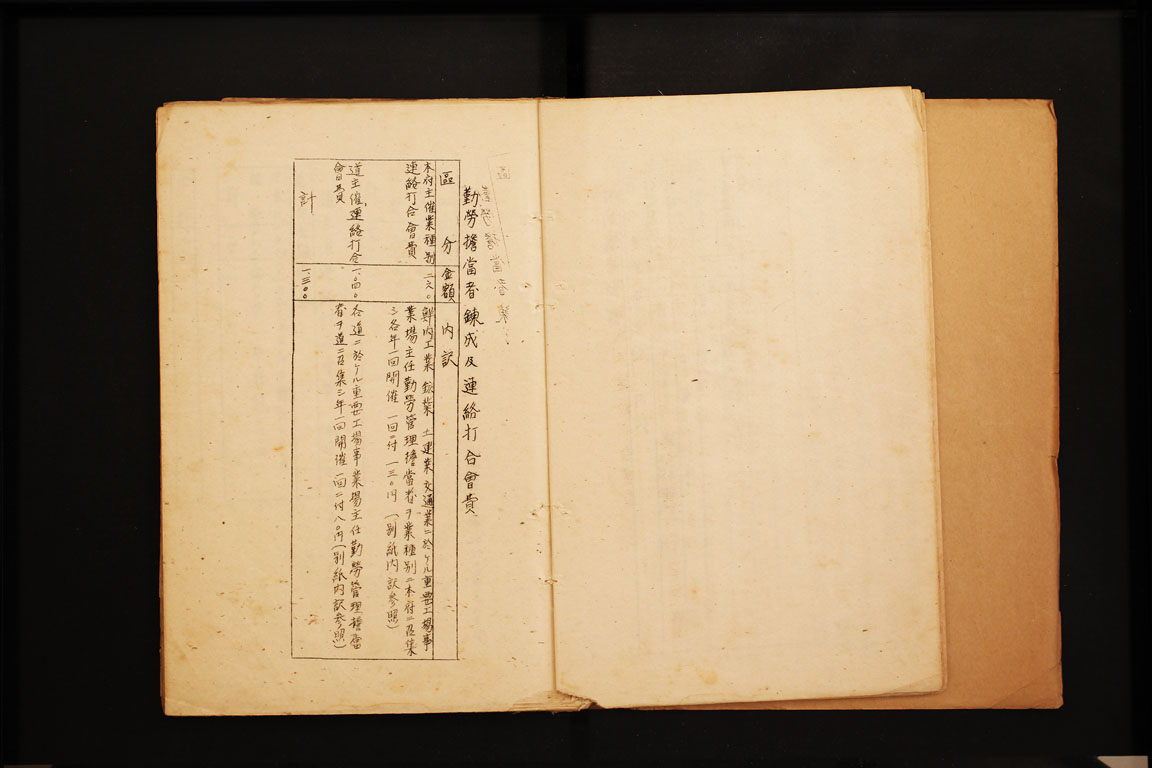 勤勞擔當者鍊成及連絡打合會費
區分
金額
內訳
本府主催業種別
連絡打合會費
二六〇
鮮內工業 鉱業 土建業 交通業ニ於ケル重要工場事
業場主任勤勞管理擔當者ヲ業種別ニ本府ニ召集
シ各年一回開催 一回ニ付 一三〇円(別紙內訳參照)
道主催連絡打合
會費
一、〇四〇
各道ニ於ケル重要工場事業場主任勤勞管理擔當
者ヲ道ニ召集シ年一回開催 一回ニ付八〇円(別紙內訳參照)
計
一三〇〇